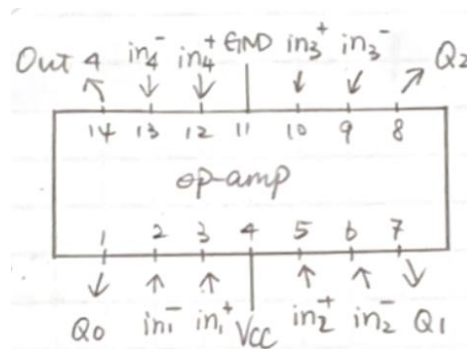 Out 4 in4⁻ in4⁺ GND in3⁺ in3⁻ Q2
14 13 12 11 10 9 8
op-amp
1 2 3 4 5 6 7
Q0 in1⁻ in1⁺ VCC in2⁺ in2⁻ Q1